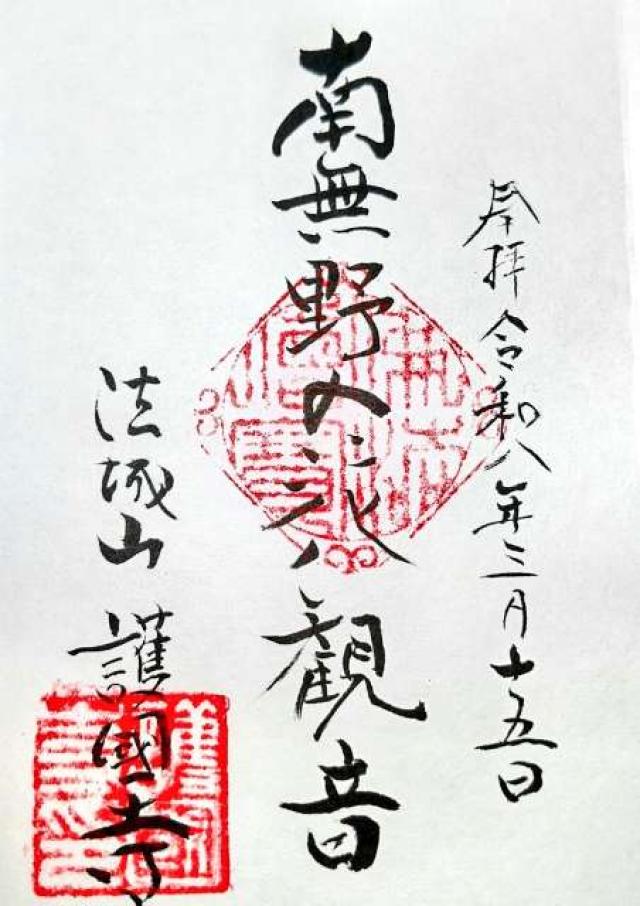 奉拝 令和八年三月十五日
南無野の花観音
法城山 護國寺